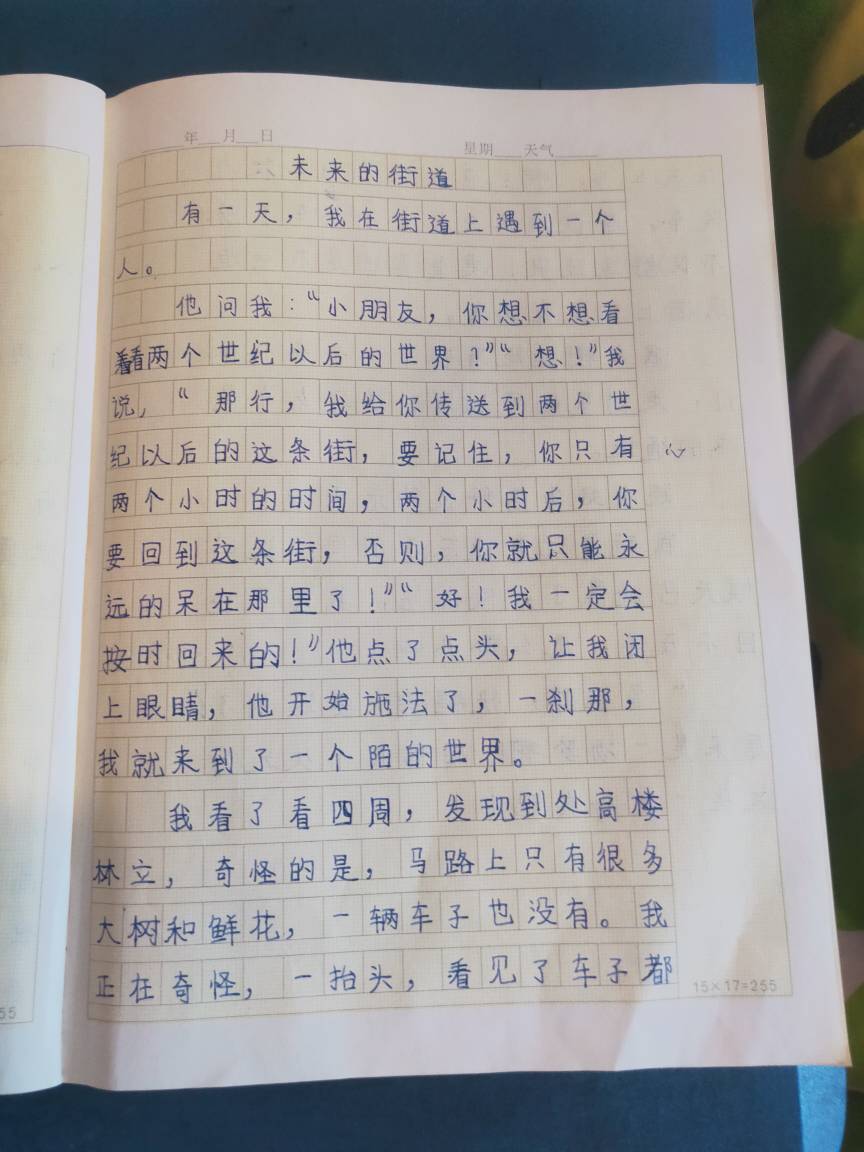 年 月 日 星期 天气
未来的街道
有一天，我在街道上遇到一个
人。
他问我：“小朋友，你想不想看
看两个世纪以后的世界？”“想！”我
说，“那行，我给你传送到两个世
纪以后的这条街，要记住，你只有
两个小时的时间，两个小时后，你
要回到这条街，否则，你就只能永
远的呆在那里了！”“好！我一定会
按时回来的！”他点了点头，让我闭
上眼睛，他开始施法了，一刹那，
我就来到了一个陌的世界。
我看了看四周，发现到处高楼
林立，奇怪的是，马路上只有很多
大树和鲜花，一辆车子也没有。我
正在奇怪，一抬头，看见了车子都
15×17=255
55